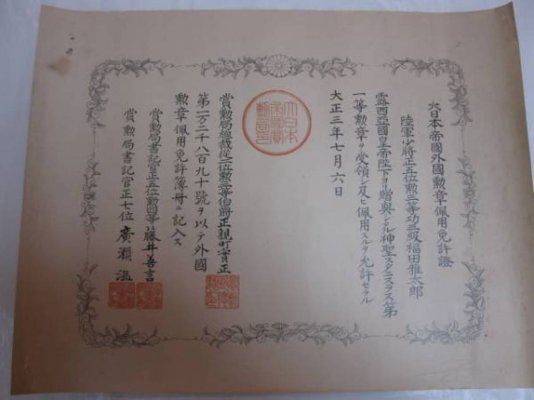 大日本帝國外國勲章佩用免許證
陸軍少將正五位勲三等功三級福田雅太郎
露西亞國皇帝陛下ヨリ贈與シタル神聖スタニスラス第
一等勲章ヲ受領シ及ヒ佩用スルヲ允許セラル
大正三年七月六日
賞勲局總裁從二位勲一等伯爵正親町實正
第二万二千八百九十號ヲ以テ外國
勲章佩用免許簿冊ニ記入ス
賞勲局書記官正五位勲四等藤井善言
賞勲局書記官正七位廣瀬
大日本